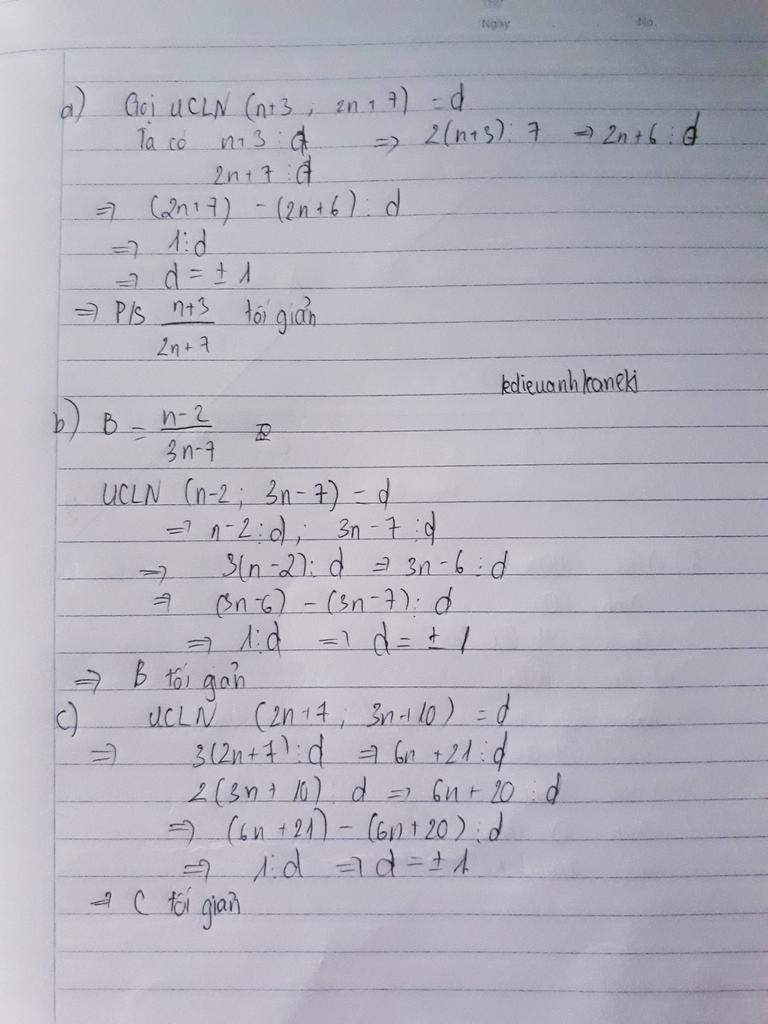 Ngày No.
a) Gọi UCLN (n+3 , 2n+7) = d
Ta có n+3 ⋮ d => 2(n+3) ⋮ 7 => 2n+6 ⋮ d
2n+7 ⋮ d
=> (2n+7) - (2n+6) ⋮ d
=> 1 ⋮ d
=> d = ± 1
=> P/S n+3/2n+7 tối giản
kdieuanhkaneki
b) B = n-2/3n-7
UCLN (n-2 ; 3n-7) = d
=> n-2 ⋮ d ; 3n-7 ⋮ d
=> 3(n-2) ⋮ d => 3n-6 ⋮ d
=> (3n-6) - (3n-7) ⋮ d
=> 1 ⋮ d => d = ± 1
=> B tối giản
c) UCLN (2n+7 ; 3n+10) = d
=> 3(2n+7) ⋮ d => 6n+21 ⋮ d
2(3n+10) ⋮ d => 6n+20 ⋮ d
=> (6n+21) - (6n+20) ⋮ d
=> 1 ⋮ d => d = ± 1
=> C tối giản